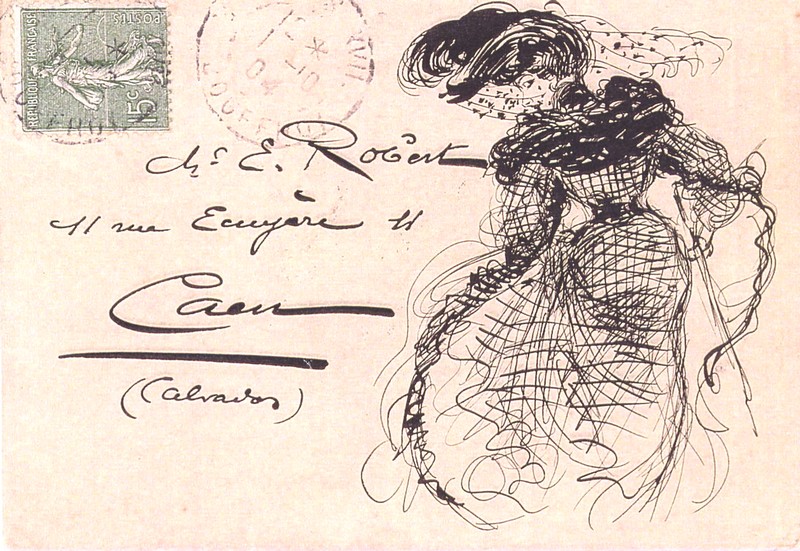 REPUBLIQUE FRANÇAISE
POSTES
15c
04
Mr. E. Robert
11 rue Ecuyère 11
Caen
(Calvados)